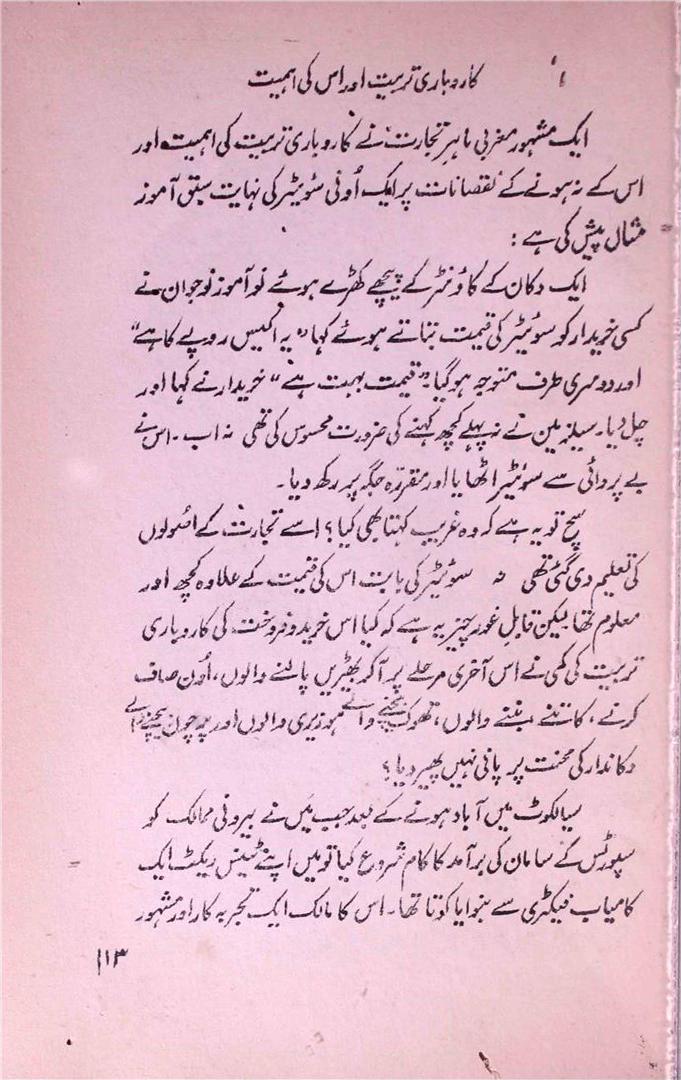 کاروباری تربیت اور اس کی اہمیت
ایک مشہور مغربی ماہر تجارت نے کاروباری تربیت کی اہمیت اور
اس کے نہ ہونے کے نقصانات پر ایک اُونی سوئیٹر کی نہایت سبق آموز
مثال پیش کی ہے :
ایک دکان کے کاؤنٹر کے پیچھے کھڑے ہوئے نو آموز نوجوان نے
کسی خریدار کو سوئیٹر کی قیمت بتاتے ہوئے کہا "یہ اکیس روپے کا ہے"
اور دوسری طرف متوجہ ہو گیا۔ "قیمت بہت ہے" خریدار نے کہا اور
چل دیا۔ سیلزمین نے نہ پہلے کچھ کہنے کی ضرورت محسوس کی تھی نہ اب۔ اس نے
بے پروائی سے سوئیٹر اٹھایا اور مقررّہ جگہ پر رکھ دیا۔
سچ تو یہ ہے کہ وہ غریب کہتا بھی کیا؟ اسے تجارت کے اصُولوں
کی تعلیم دی گئی تھی نہ سوئیٹر کی بابت اس کی قیمت کے علاوہ کچھ اور
معلوم تھا لیکن قابلِ غور چیز یہ ہے کہ کیا اس خرید و فروخت کی کاروباری
تربیت کی کمی نے اس آخری مرحلے پر آ کر بھیڑیں پالنے والوں، اُون صاف
کرنے، کاتنے، بننے والوں، تھوک بیچنے والے ہوزیری والوں اور پرچون بیچنے والے
دکاندار کی محنت پر پانی نہیں پھیر دیا؟
سیالکوٹ میں آباد ہونے کے بعد جب میَں نے بیرونی ممالک کو
سپورٹس کے سامان کی برآمد کا کام شروع کیا تو میں اپنے ٹینس ریکٹ ایک
کامیاب فیکٹری سے بنوایا کرتا تھا۔ اس کا مالک ایک تجربہ کار اور مشہور
۱۱۳